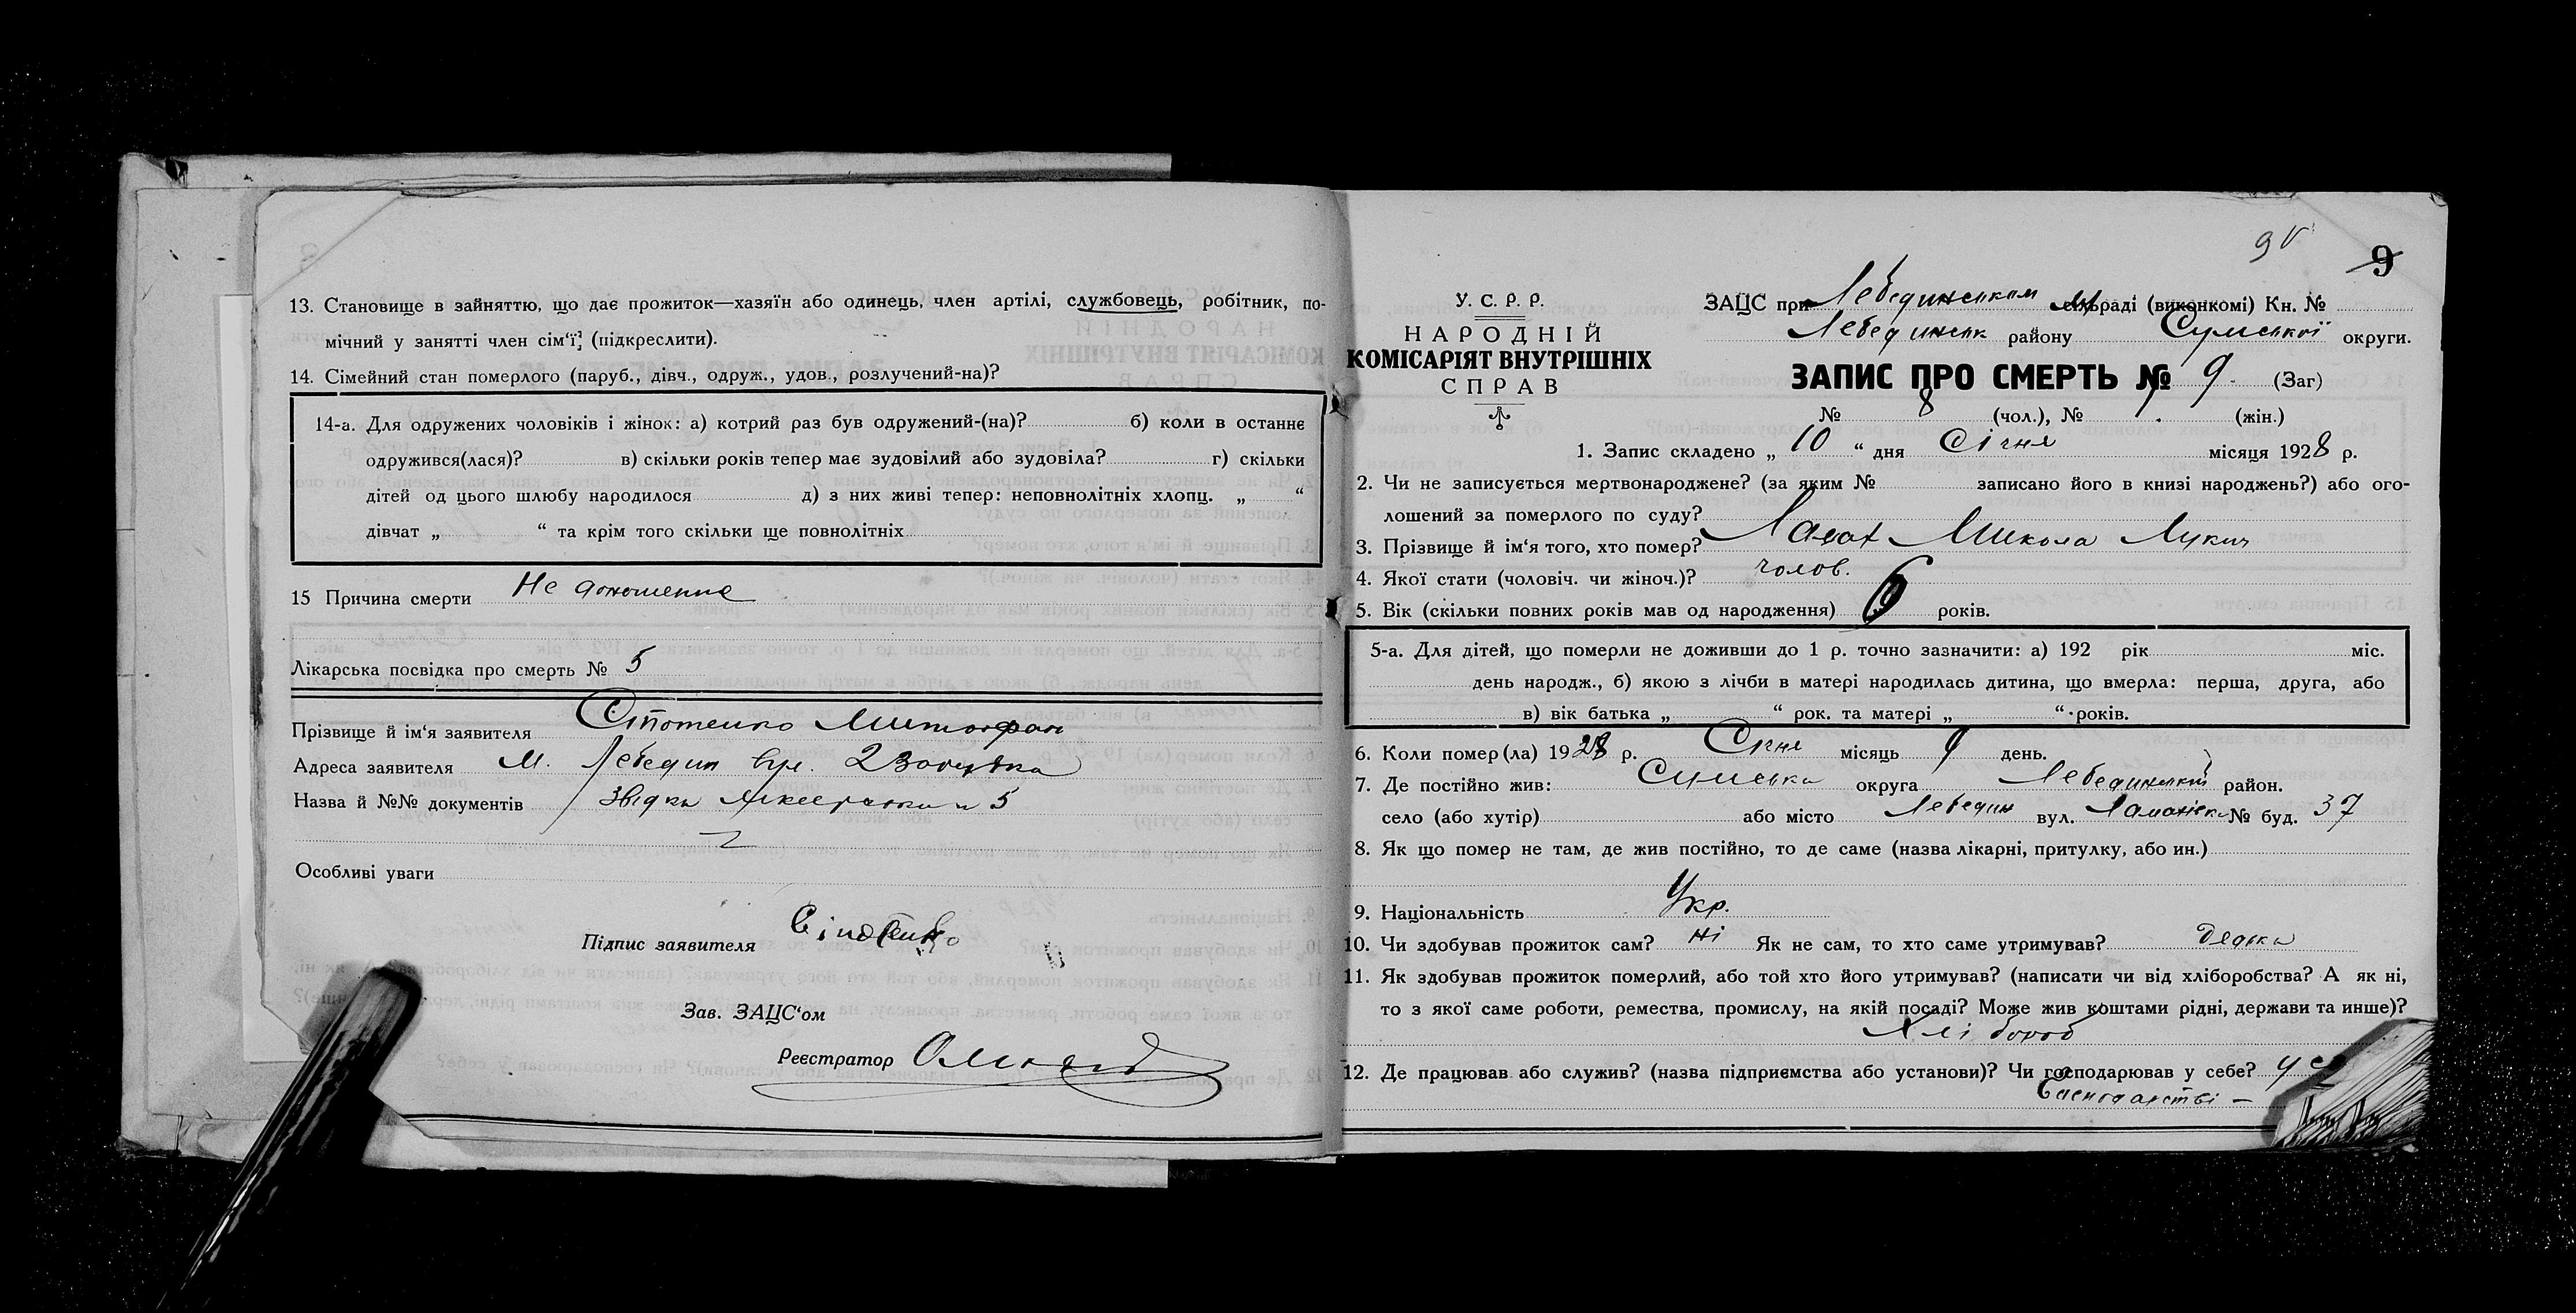 13. Становище в зайняттю, що дає прожиток—хазяїн або одинець, член артілі, службовець, робітник, по-
мічний у занятті член сім‘ї; (підкреслити).
14. Сімейний стан померлого (паруб., дівч., одруж., удов., розлучений-на)?
14-а. Для одружених чоловіків і жінок: а) котрий раз був одружений-(на)? б) коли в останнє
одружився(лася)? в) скільки років тепер має зудовілий або зудовіла? г) скільки
дітей од цього шлюбу народилося д) з них живі тепер: неповнолітніх хлопц. „ “
дівчат „ “ та крім того скільки ще повнолітніх
15 Причина смерти Не доношенне
Лікарська посвідка про смерть № 5
Прізвище й ім‘я заявителя Сіпотенко Митофан
Адреса заявителя М. Лебедин вул.
Назва й №№ документів 5
Особливі уваги
Підпис заявителя Сіпотенко
Зав. ЗАЦС‘ом
Реєстратор
9
9
У. С. Р. Р.
НАРОДНІЙ
КОМІСАРІЯТ ВНУТРІШНІХ
СПРАВ
ЗАЦС при Лебединським раді (виконкомі) Кн. №
Лебединськ району Сумської округи.
ЗАПИС ПРО СМЕРТЬ № 9 (Заг)
№ 8 (чол.), № (жін.)
1. Запис складено „ 10 “ дня Січня місяця 1928 р.
2. Чи не записується мертвонароджене? (за яким № записано його в книзі народжень?) або ого-
лошений за померлого по суду?
3. Прізвище й ім‘я того, хто помер? Микола Лукич
4. Якої стати (чоловіч. чи жіноч.)? чолов.
5. Вік (скільки повних років мав од народження) років.
5-а. Для дітей, що померли не доживши до 1 р. точно зазначити: а) 192 рік міс.
день народж., б) якою з лічби в матері народилась дитина, що вмерла: перша, друга, або
в) вік батька „ “ рок. та матері „ “ років.
6. Коли помер(ла) 1928 р. Січня місяць 9 день.
7. Де постійно жив: Сумська округа Лебединський район.
село (або хутір) або місто Лебедин вул. № буд. 37
8. Як що помер не там, де жив постійно, то де саме (назва лікарні, притулку, або ин.)
9. Національність Укр.
10. Чи здобував прожиток сам? ні Як не сам, то хто саме утримував?
11. Як здобував прожиток померлий, або той хто його утримував? (написати чи від хліборобства? А як ні,
то з якої саме роботи, ремества, промислу, на якій посаді? Може жив коштами рідні, держави та инше)?
Хлібороб
12. Де працював або служив? (назва підприємства або установи)? Чи господарював у себе? у
Господарстві —